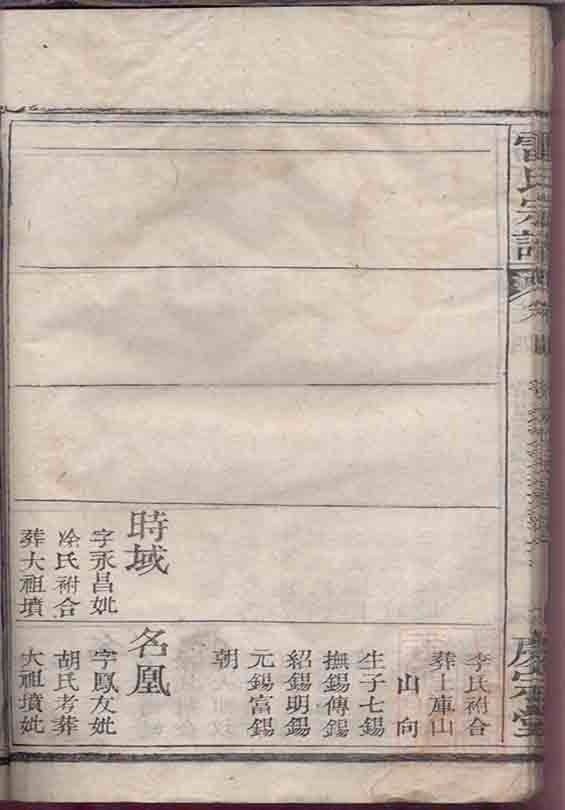 雷氏宗譜
時域
字永昌妣
涂氏祔合
葬大祖墳
李氏祔合
葬上庫山
山 向
生子七錫
撫錫傳錫
紹錫明錫
元錫富錫
朝
名凰
字鳳友妣
胡氏考葬
大祖墳妣